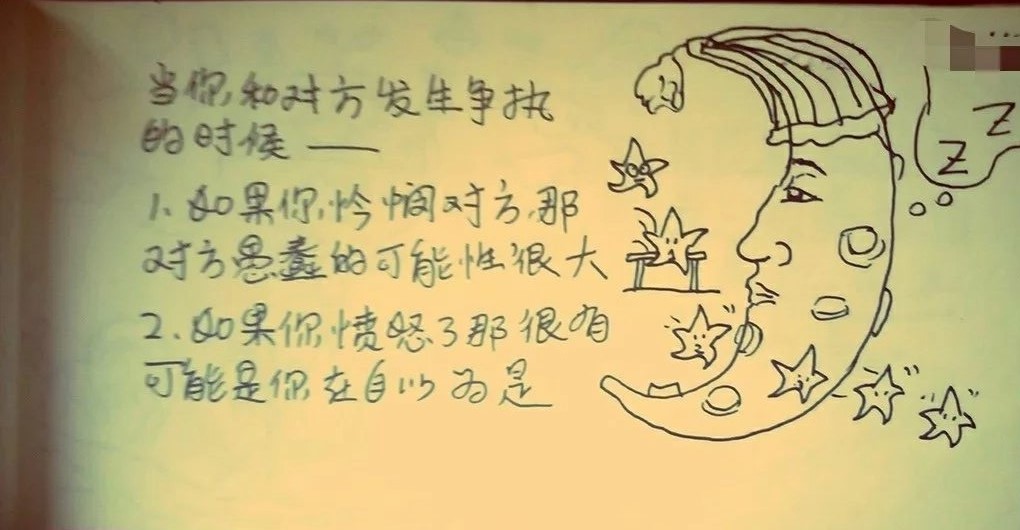 当你和对方发生争执
的时候 ——
1. 如果你怜悯对方，那
对方愚蠢的可能性很大
2. 如果你愤怒了那很有
可能是你在自以为是
Z
Z